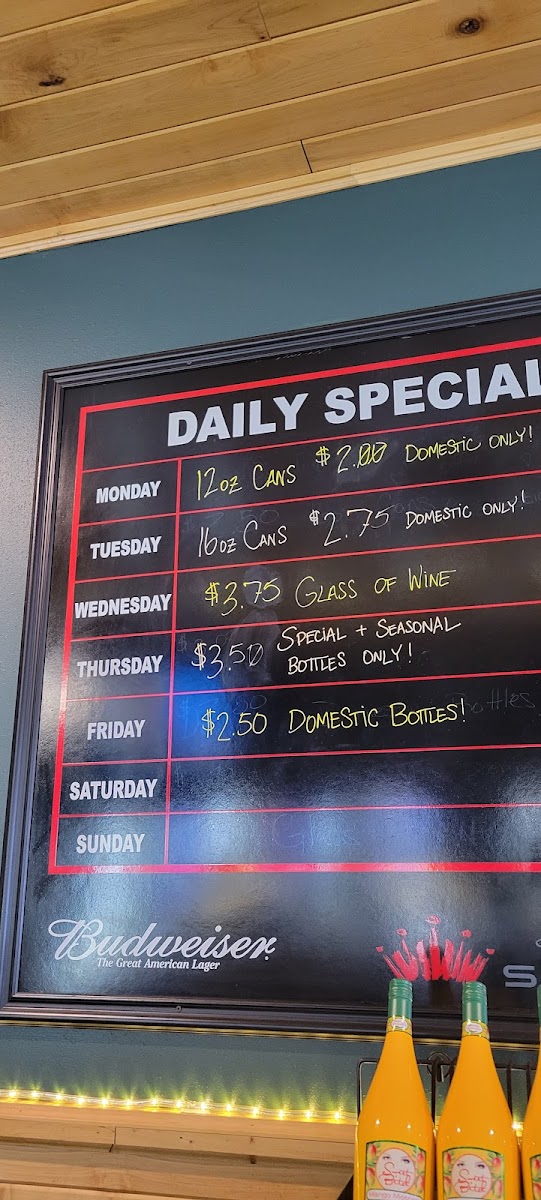 DAILY SPECIAL
MONDAY 12oz CANS $2.00 DOMESTIC ONLY!
TUESDAY 16oz CANS $2.75 DOMESTIC ONLY!
WEDNESDAY $3.75 GLASS OF WINE
THURSDAY $3.50 SPECIAL + SEASONAL
BOTTLES ONLY!
FRIDAY $2.50 DOMESTIC BOTTLES!
SATURDAY
SUNDAY
Budweiser
The Great American Lager
S